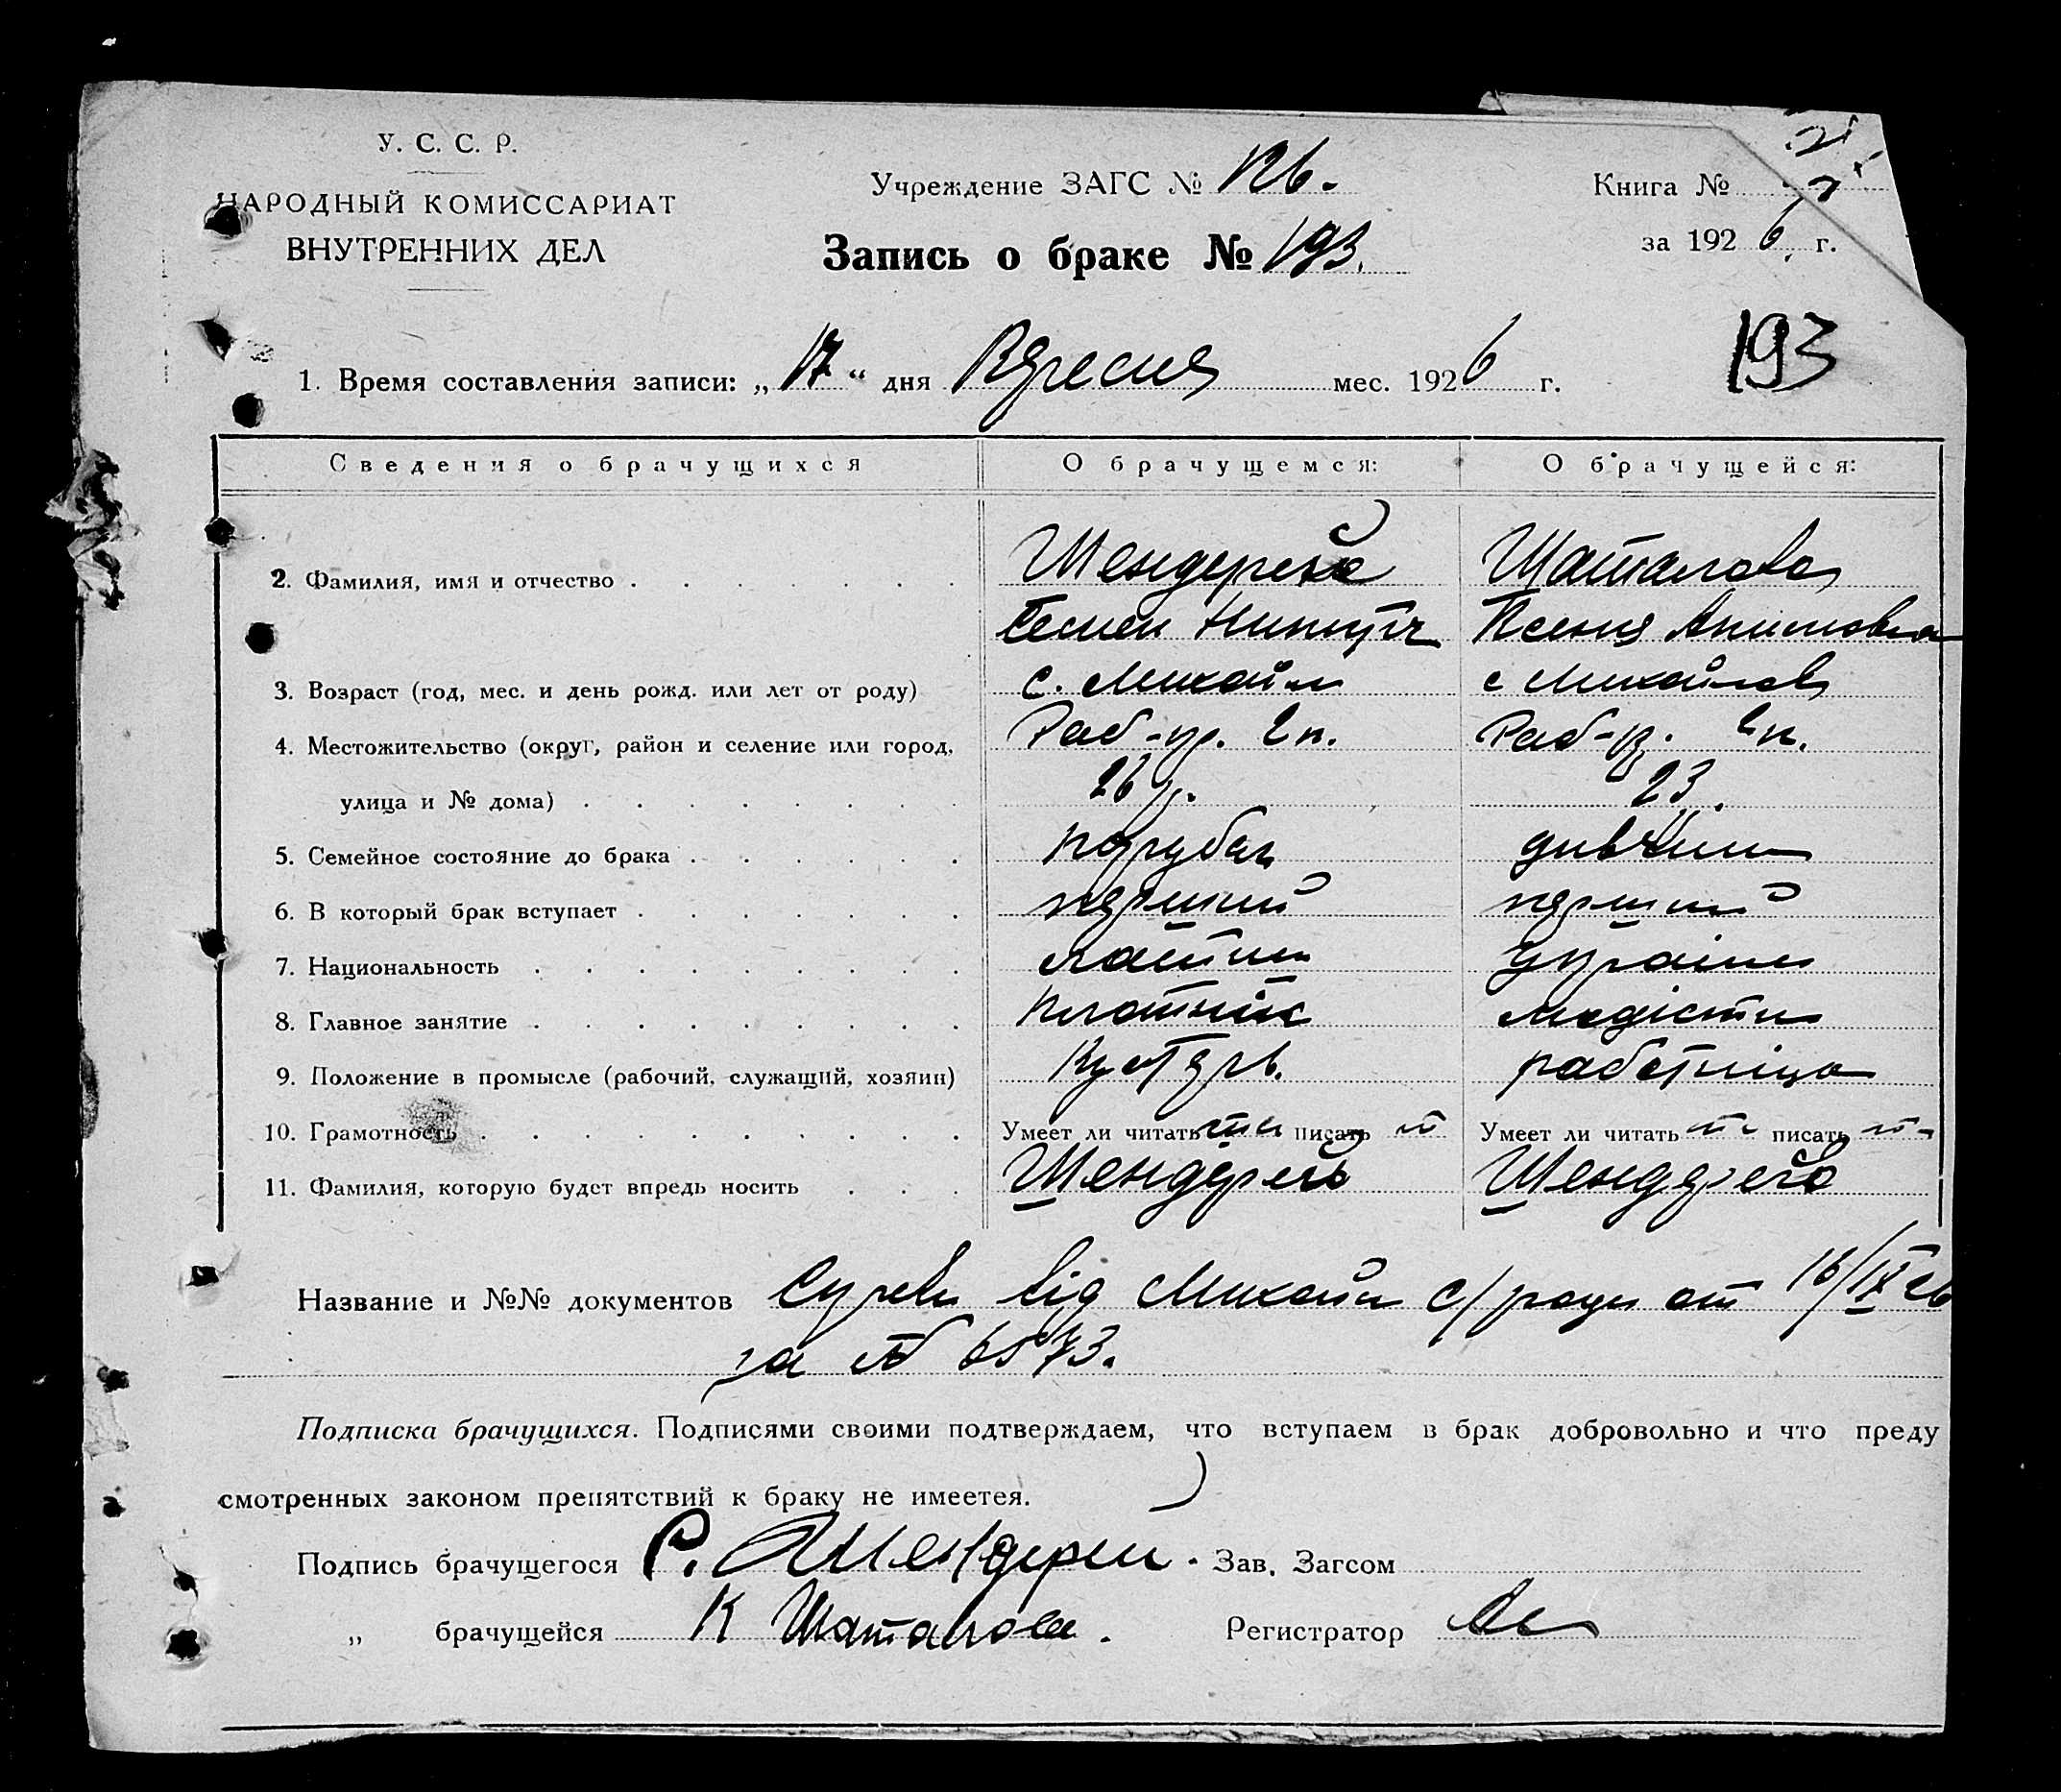 У. С. С. Р.
НАРОДНЫЙ КОМИССАРИАТ
ВНУТРЕННИХ ДЕЛ
Учреждение ЗАГС №
Книга №
Запись о браке № 193.
за 1926 г.
193
1. Время составления записи: „17“ дня Вересня мес. 1926 г.
Сведения о брачущихся О брачущемся: О брачущейся:
2. Фамилия, имя и отчество . . . . . . . Шаталова
Семен Ксения Акимовна
3. Возраст (год, мес. и день рожд. или лет от роду) с. Михайл с Михайлов
4. Местожительство (округ, район и селение или город, Раб-пр. 2 п. Раб-пр. 2 п.
улица и № дома) . . . . . . . 26 р. 23.
5. Семейное состояние до брака . . . . . . парубок дивчин
6. В который брак вступает . . . . . . . перший перший
7. Национальность . . . . . . . . украин
8. Главное занятие . . . . . . . . плотник модистк
9. Положение в промысле (рабочий, служащий, хозяин) Кустарь. работница
10. Грамотность . . . . . . . . . Умеет ли читать так писать Умеет ли читать писать
11. Фамилия, которую будет впредь носить . . . Шендерей Шендерей
Название и №№ документов від Михайл с/ради от 16/IX 26
за № 6573.
Подписка брачущихся. Подписями своими подтверждаем, что вступаем в брак добровольно и что преду
смотренных законом препятствий к браку не имеется.
Подпись брачущегося С. Шендерей. Зав. Загсом
„ брачущейся К Шаталова. Регистратор